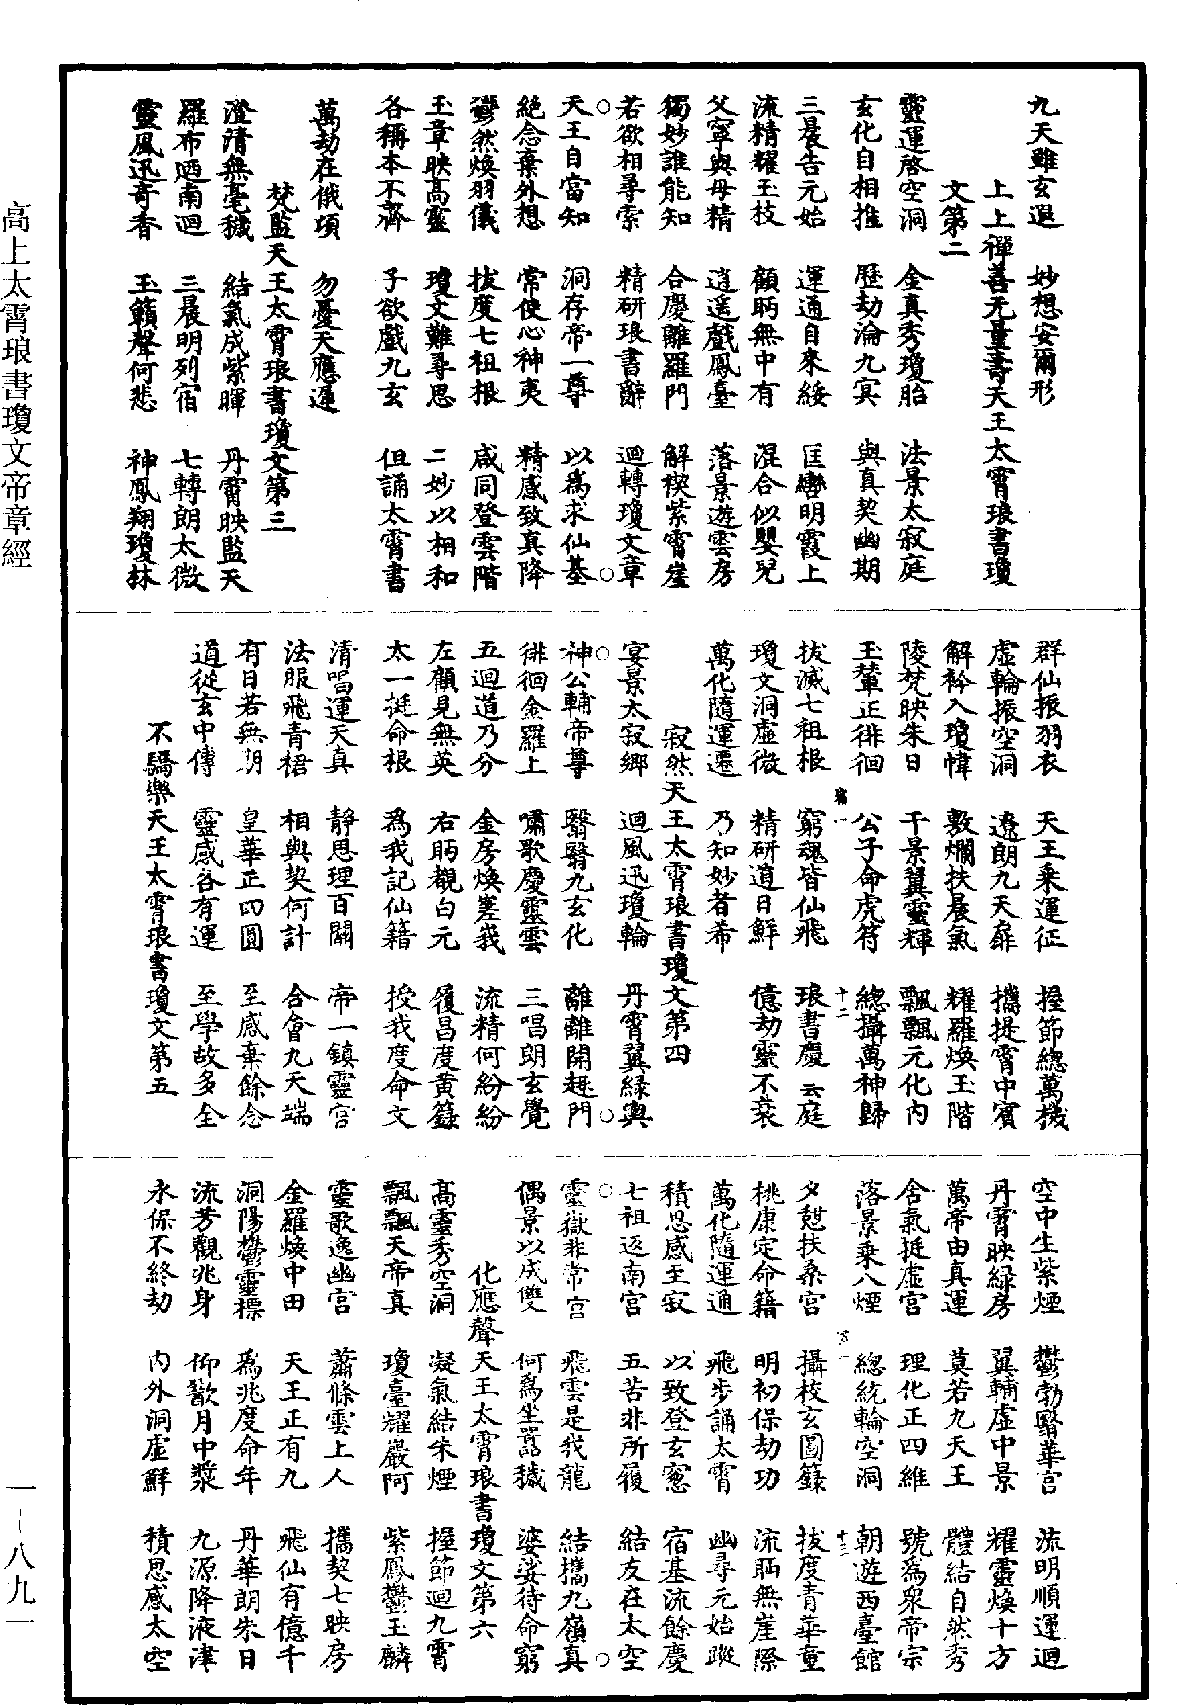 九天雖玄遐　妙想安爾形
上上禪善无量壽天王太霄琅書瓊
文第二
靈運啓空洞　金真秀瓊胎　法景太寂庭
玄化自相推　歷劫淪九㝠　與真契幽期
三晨告元始　運通自來綏　匡轡明霞上
流精耀玉技　顧眄無中有　混合似嬰兒
父寧與母精　逍遥戲鳳臺　落景遊雲房
獨妙誰能知　合慶離羅門　解稧紫霄崖
若欲相尋索　精研琅書辭　迴轉瓊文章
天王自當知　洞存帝一尊　以為求仙基
絕念棄外想　常使心神夷　精感致真降
鬱然煥羽儀　拔度七祖根　咸同登雲階
玉章映高靈　瓊文難尋思　二妙以相和
各稱本不齋　子欲戲九玄　但誦太霄書
萬劫在俄項　勿憂天應運
梵監天王太霄琅書瓊文第三
澄清無毫穢　結氣成紫暉　丹霄映監天
羅布迺南迴　三晨明列宿　七轉朗太微
靈風迅奇香　玉籟聲何悲　神鳳翔瓊林
群仙振羽衣　天王乘運征　握節總萬機
虛輪振空洞　遼朗九天扉　攜提霄中賓
解衿入瓊幃　敷爛扶晨氣　耀羅煥玉階
陵梵映朱日　千景翼靈輝　飄飄元化內
玉輦正徘徊　公子命虎符　總攝萬神歸
十二
拔滅七祖根　窮魂皆仙飛　琅書慶雲庭
瓊文洞虛微　精研道日鮮　億劫靈不衰
萬化隨運遷　乃知妙者希
寂然天王太霄琅書瓊文第四
宴景太寂鄉　迴風迅瓊輪　丹霄翼緑輿
神公輔帝尊　翳翳九玄化　離離開趣門
徘徊金羅上　嘯歌慶靈雲　三唱朗玄覺
五迴道乃分　金房煥嵳峩　流精何紛紛
左顧見無英　右眄覩白元　履昌度黄籙
太一挻命根　為我記仙籍　授我度命文
清唱運天真　靜思理百關　帝一鎮靈宫
法服飛青裙　相與契何計　合會九天端
有日若無期　皇華正四圓　至感棄餘念
道從玄中傳　靈感各有運　至學故多全
不驕樂天王太霄琅書瓊文第五
空中生紫煙　鬱勃翳華宫　流明順運迴
丹霄映緑房　翼輔虛中景　耀靈煥十方
萬帝由真運　莫若九天王　體結自然秀
含氣挻虛宫　理化正四維　號為眾帝宗
落景乘八煙　總統輪空洞　朝遊西臺館
十三
夕憇扶桑宫　攝校玄圖籙　拔度青華童
桃康定命籍　明初保劫功　流眄無崖際
萬化隨運通　飛步誦太霄　幽尋元始蹤
積思感至寂　以致登玄窓　宿基流餘慶
七祖返南宫　五苦非所履　結友在太空
靈嶽非常宫　飛雲是我龍　結攜九嶺真
偶景以成雙　何為坐嚻穢　婆娑待命窮
化應聲天王太霄琅書瓊文第六
高靈秀空洞　凝氣結朱煙　握節迴九霄
飄飄天帝真　瓊臺耀巖阿　紫鳳鬱玉麟
靈歌逸幽宫　蕭條雲上人　攜契七映房
金羅煥中田　天王正有九　飛仙有億千
洞陽欝靈標　為兆度命年　丹華朗朱日
流芳觀兆身　仰歠月中漿　九源降液津
永保不終劫　內外洞虛鮮　積思感太空
高上太霄琅書瓊文帝章經
一－八九一